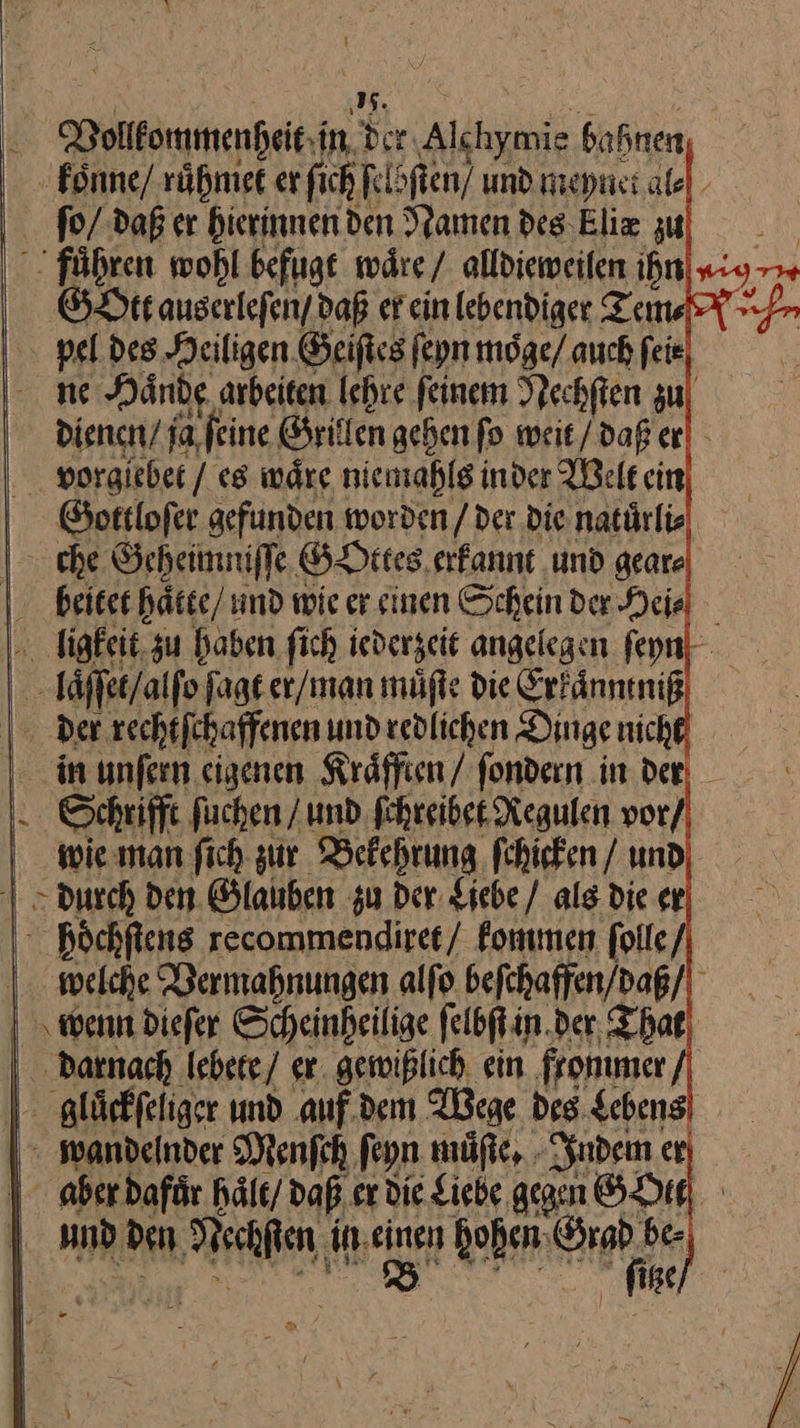 15.
Vollkommenheit in der Alchymie bahnen
koͤnne/ ruͤhmet er ſich ſelbſten/ und meynet al⸗
ſo/ daß er hierinnen den Namen des Eliæ zu
fuͤhren wohl befugt waͤre/ alldieweilen ihn
GOtt auserleſen/ daß er ein lebendiger Tem⸗
pel des Heiligen Geiſtes ſeyn moͤge/ auch ſei⸗
ne Haͤnde arbeiten lehre ſeinem Nechſten zu
dienen/ ja ſeine Grillen gehen ſo weit/ daß er
vorgiebet/ es waͤre niemahls in der Welt ein
Gottloſer gefunden worden/ der die natuͤrli⸗
che Geheimniſſe GOttes erkannt und gear⸗
beitet haͤtte/ und wie er einen Schein der Hei⸗
ligkeit zu haben ſich iederzeit angelegen ſeyn
laͤſſet/ alſo ſagt er/ man muͤſte die Erkaͤnntniß
der rechtſchaffenen und redlichen Dinge nicht
in unſern eigenen Kraͤfften/ ſondern in der
Schrifft ſuchen/ und ſchreibet Regulen vor/
wie man ſich zur Bekehrung ſchicken/ und
durch den Glauben zu der Liebe/ als die er
hoͤchſtens recommendiret/ kommen ſolle/
welche Vermahnungen alſo beſchaffen/ daß/
wenn dieſer Scheinheilige ſelbſt in der That
darnach lebete/ er gewißlich ein frommer/
gluͤckſeliger und auf dem Wege des Lebens
wandelnder Menſch ſeyn muͤſte. Indem er
aber dafuͤr haͤlt/ daß er die Liebe gegen GOtt
und den Nechſten in einen hohen Grad be⸗
B ſitze/